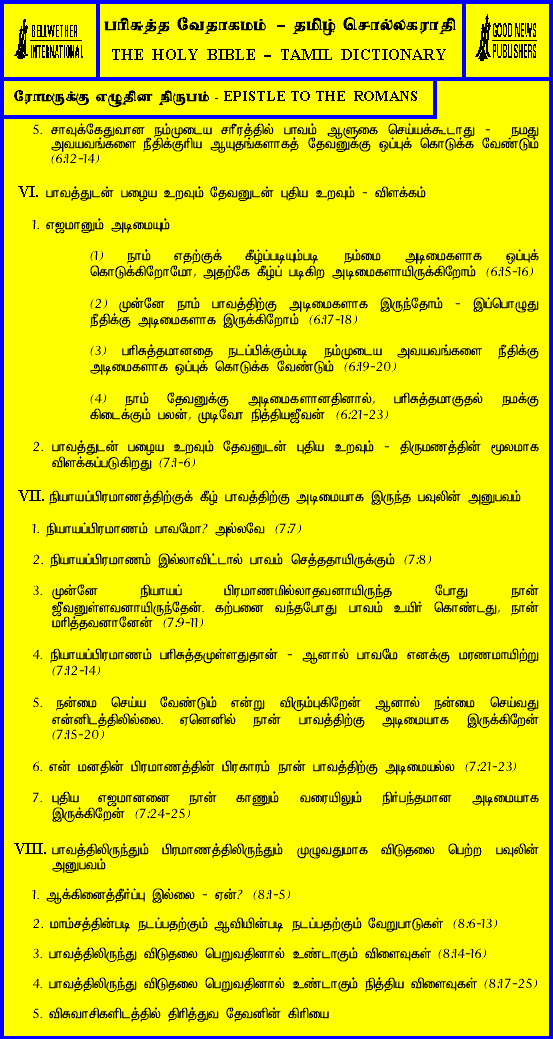 BELLWETHER
INTERNATIONAL
பரிசுத்த வேதாகமம் – தமிழ் சொல்லகராதி
THE HOLY BIBLE – TAMIL DICTIONARY
GOOD NEWS
PUBLISHERS
ரோமருக்கு எழுதின நிருபம் - EPISTLE TO THE ROMANS
5. சாவுக்கேதுவான நம்முடைய சரீரத்தில் பாவம் ஆளுகை செய்யக்கூடாது – நமது
அவயவங்களை நீதிக்குரிய ஆயுதங்களாகத் தேவனுக்கு ஒப்புக் கொடுக்க வேண்டும்
(6:12-14)
VI. பாவத்துடன் பழைய உறவும் தேவனுடன் புதிய உறவும் – விளக்கம்
1. எஜமானும் அடிமையும்
(1) நாம் எதற்குக் கீழ்ப்படியும்படி நம்மை அடிமைகளாக ஒப்புக்
கொடுக்கிறோமோ, அதற்கே கீழ்ப் படிகிற அடிமைகளாயிருக்கிறோம் (6:15-16)
(2) முன்னே நாம் பாவத்திற்கு அடிமைகளாக இருந்தோம் – இப்பொழுது
நீதிக்கு அடிமைகளாக இருக்கிறோம் (6:17-18)
(3) பரிசுத்தமானதை நடப்பிக்கும்படி நம்முடைய அவயவங்களை நீதிக்கு
அடிமைகளாக ஒப்புக் கொடுக்க வேண்டும் (6:19-20)
(4) நாம் தேவனுக்கு அடிமைகளானதினால், பரிசுத்தமாகுதல் நமக்கு
கிடைக்கும் பலன், முடிவோ நித்தியஜீவன் (6:21-23)
2. பாவத்துடன் பழைய உறவும் தேவனுடன் புதிய உறவும் – திருமணத்தின் மூலமாக
விளக்கப்படுகிறது (7:1-6)
VII. நியாயப்பிரமாணத்திற்குக் கீழ் பாவத்திற்கு அடிமையாக இருந்த பவுலின் அனுபவம்
1. நியாயப்பிரமாணம் பாவமோ? அல்லவே (7:7)
2. நியாயப்பிரமாணம் இல்லாவிட்டால் பாவம் செத்ததாயிருக்கும் (7:8)
3. முன்னே நியாயப் பிரமாணமில்லாதவனாயிருந்த போது நான்
ஜீவனுள்ளவனாயிருந்தேன். கற்பனை வந்தபோது பாவம் உயிர் கொண்டது, நான்
மரித்தவனானேன் (7:9-11)
4. நியாயப்பிரமாணம் பரிசுத்தமுள்ளதுதான் – ஆனால் பாவமே எனக்கு மரணமாயிற்று
(7:12-14)
5. நன்மை செய்ய வேண்டும் என்று விரும்புகிறேன் ஆனால் நன்மை செய்வது
என்னிடத்திலில்லை. ஏனெனில் நான் பாவத்திற்கு அடிமையாக இருக்கிறேன்
(7:15-20)
6. என் மனதின் பிரமாணத்தின் பிரகாரம் நான் பாவத்திற்கு அடிமையல்ல (7:21-23)
7. புதிய எஜமானனை நான் காணும் வரையிலும் நிர்பந்தமான அடிமையாக
இருக்கிறேன் (7:24-25)
VIII. பாவத்திலிருந்தும் பிரமாணத்திலிருந்தும் முழுவதுமாக விடுதலை பெற்ற பவுலின்
அனுபவம்
1. ஆக்கினைத்தீர்ப்பு இல்லை – ஏன்? (8:1-5)
2. மாம்சத்தின்படி நடப்பதற்கும் ஆவியின்படி நடப்பதற்கும் வேறுபாடுகள் (8:6-13)
3. பாவத்திலிருந்து விடுதலை பெறுவதினால் உண்டாகும் விளைவுகள் (8:14-16)
4. பாவத்திலிருந்து விடுதலை பெறுவதினால் உண்டாகும் நித்திய விளைவுகள் (8:17-25)
5. விசுவாசிகளிடத்தில் திரித்துவ தேவனின் கிரியை